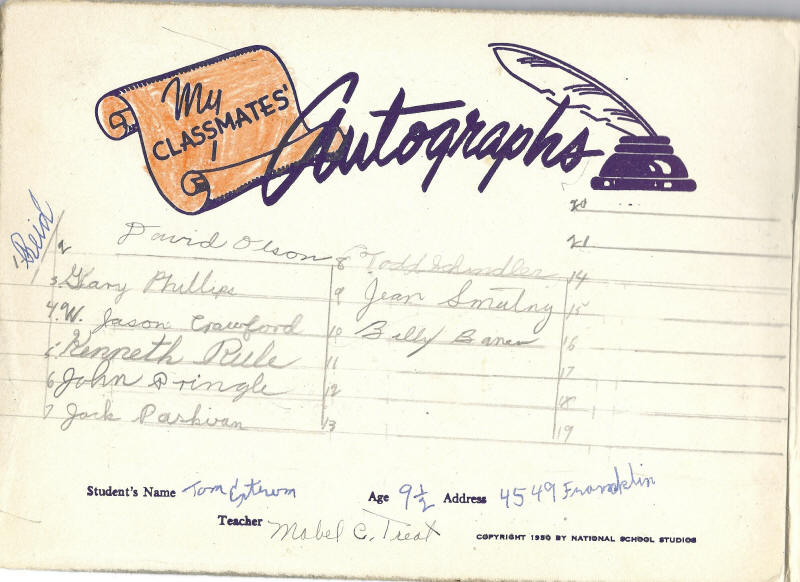 My
CLASSMATES'
Autographs
1 Reid
20
21
2 David Olson 8 Todd Schindler 14
3 Gary Phillips 9 Jean Smutny 15
4 W. Jason Crawford 10 Billy 16
5 Kenneth Rule 11 17
6 John Pringle 12 18
7 Jack 13 19
Student's Name Tom Age 9 1/2 Address 4549 Franklin
Teacher Mabel C. Treat
COPYRIGHT 1950 BY NATIONAL SCHOOL STUDIOS